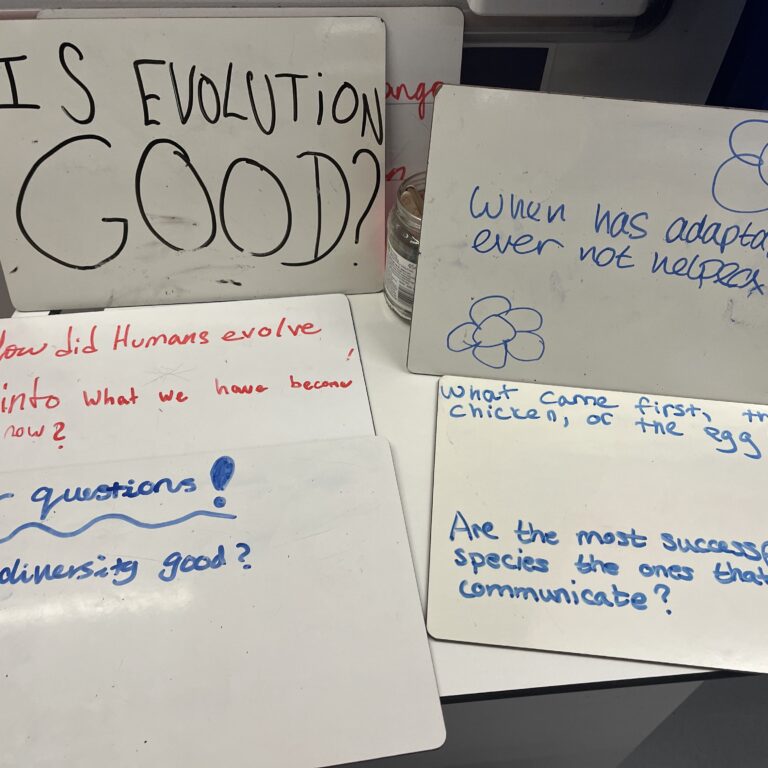 IS EVOLUTION
GOOD?
ange
When has adapta
ever not helped
How did Humans evolve
into what we have become
now?
What came first, th
chicken, or the egg
questions!
diversity good?
Are the most successf
species the ones that
communicate?